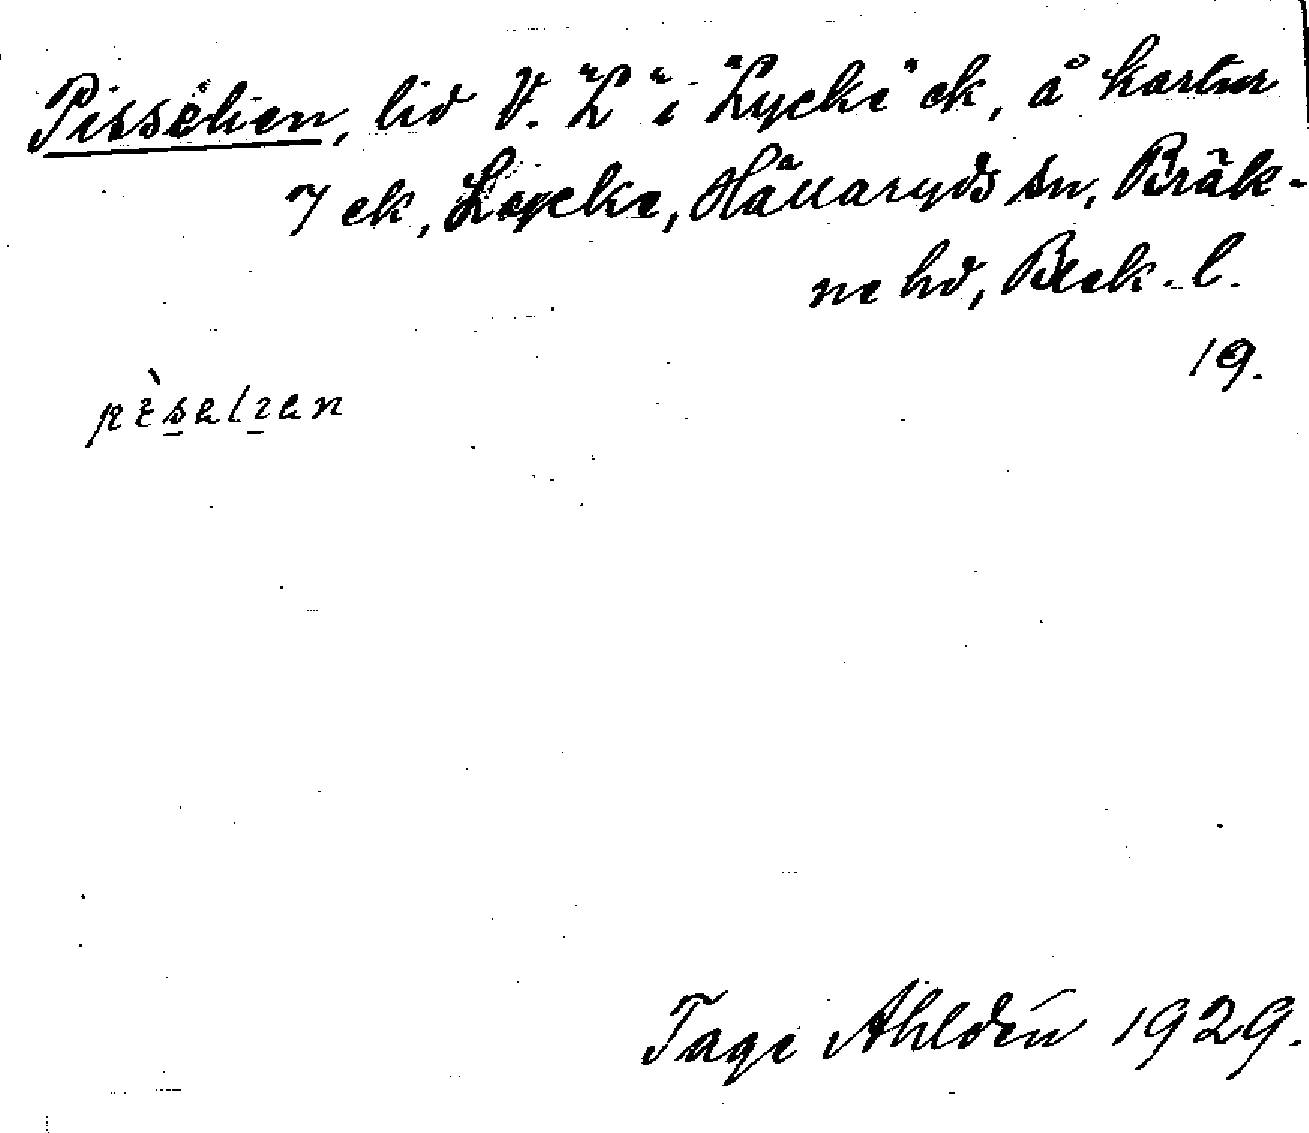 Pisselien, lid V. "L" i "Lycke" ek, å kartan
7 ek, Lycke, Hällaryds sn, Bräk-
ne hd, Blek. l.
19.
Tage Ahldén 1929.